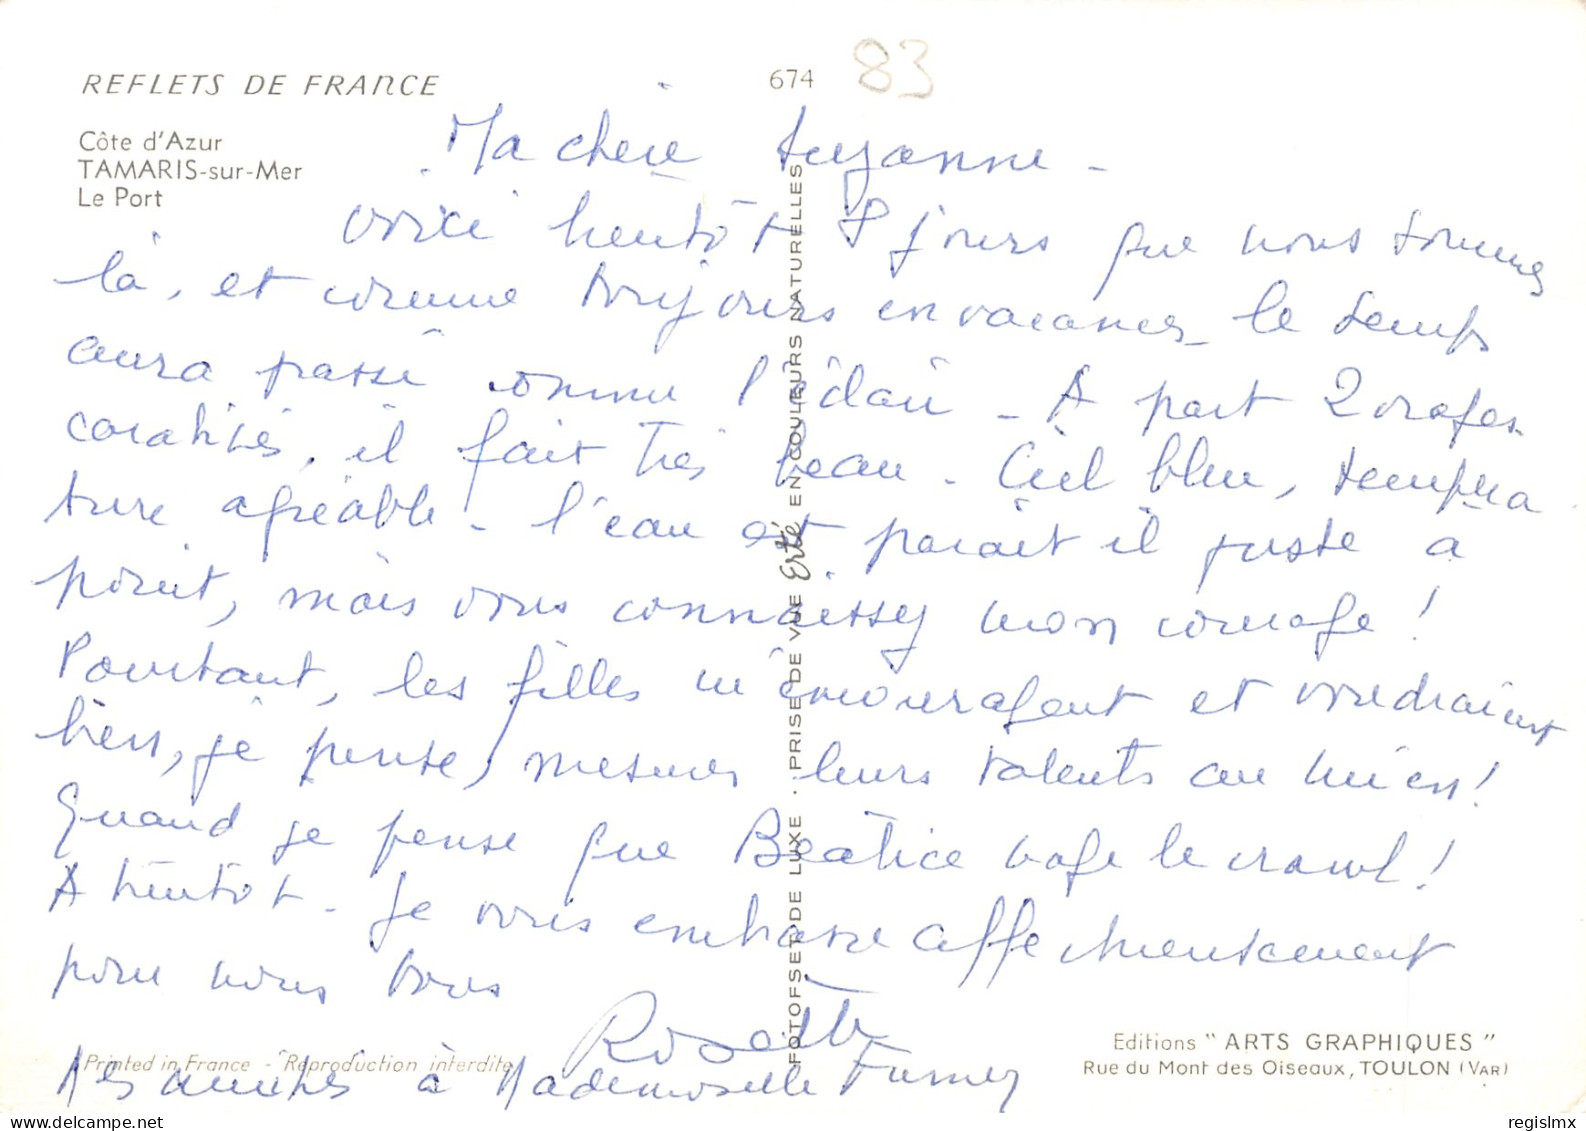 REFLETS DE FRANCE
674
83
Côte d'Azur
TAMARIS-sur-Mer
Le Port
Ma chère Suzanne -
voici bientôt 8 jours que nous sommes
là, et comme toujours en vacances le temps
aura passé comme l'éclair - A part 2 orages
carabinés, il fait très beau - Ciel bleu, tempéra
ture agréable - l'eau est paraît il juste à
point, mais vous connaissez mon courage !
Pourtant, les filles m'encouragent et voudraient
bien, je pense, mesurer leurs talents au mien !
Quand je pense que Béatrice nage le crawl !
A bientôt - Je vous embrasse affectueusement
pour nous tous
Mes amitiés à Mademoiselle
FOTOFSET DE LUXE · PRISE DE VUE Erté EN COULEURS NATURELLES
Printed in France - Reproduction interdite
Editions "ARTS GRAPHIQUES"
Rue du Mont des Oiseaux, TOULON (VAR)
regislmx